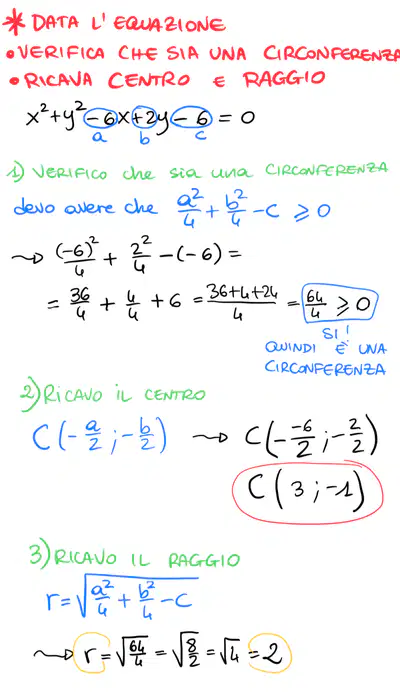 * DATA L'EQUAZIONE
• VERIFICA CHE SIA UNA CIRCONFERENZA
• RICAVA CENTRO E RAGGIO
x²+y²-6x+2y-6=0
a b c
1) VERIFICO che sia una CIRCONFERENZA
devo avere che a²/4 + b²/4 - c ≥ 0
→ (-6)²/4 + 2²/4 - (-6) =
= 36/4 + 4/4 + 6 = 36+4+24/4 = 64/4 ≥ 0
SI!
QUINDI È UNA
CIRCONFERENZA
2) RICAVO IL CENTRO
C(-a/2 ; -b/2) → C(--6/2 ; -2/2)
C(3 ; -1)
3) RICAVO IL RAGGIO
r=√a²/4 + b²/4 - c
→ r=√64/4 = √8/2 = √4 = 2